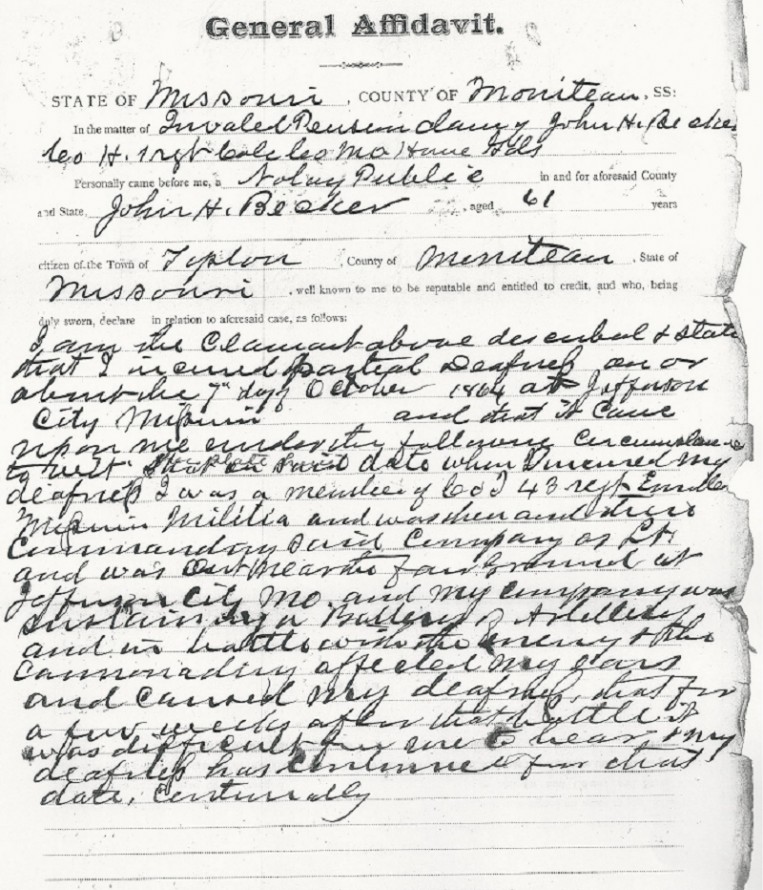 General Affidavit.
STATE OF Missouri , COUNTY OF Moniteau , SS:
In the matter of Invalid Pension claim of John H. Becker
Co H. 1 rgt Cole Co Mo Home Gds
Personally came before me, a Notary Public in and for aforesaid County
and State, John H. Becker , aged 61 years
citizen of the Town of Tipton , County of Moniteau , State of
Missouri , well known to me to be reputable and entitled to credit, and who, being
duly sworn, declare in relation to aforesaid case, as follows:
I am the Claimant above described & state
that I incured partial Deafness on or
about the 7" day of October 1864 at Jefferson
City Missouri and that it came
upon me under the following circumstance
to wit that on said date when I incured my
deafness I was a member of Co I 43 regt Enrolled
Missouri Militia and was then and there
Commanding said Company as Lt
and was out near the fair Ground at
Jefferson City Mo. and my company was
sustaining a Battery of Artillery
and in battle with the enemy & the
cannonading affected my ears
and caused my deafness, that for
a few weeks after that battle it
was difficult for me to hear & my
deafness has continued from that
date, continually